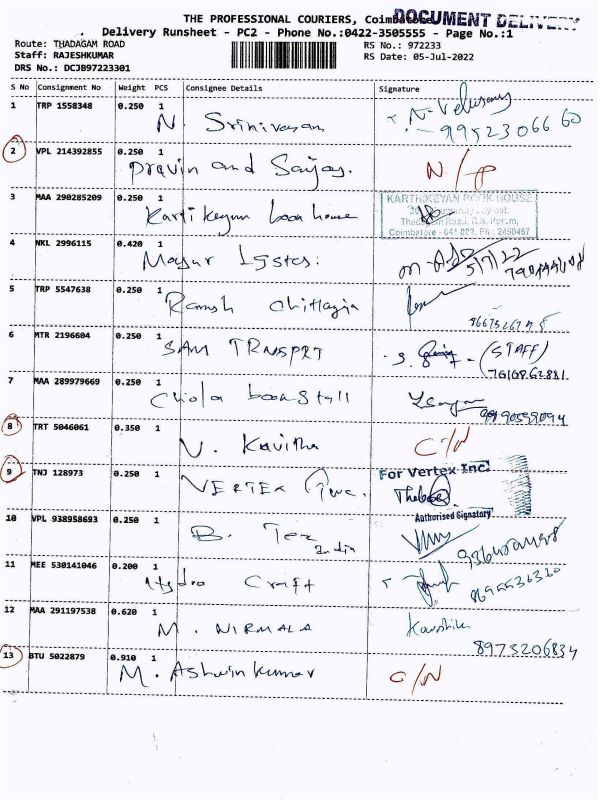 THE PROFESSIONAL COURIERS, Coimbatore
DOCUMENT DELIVERY
Delivery Runsheet - PC2 - Phone No.:0422-3505555 - Page No.:1
Route: THADAGAM ROAD
RS No.: 972233
Staff: RAJESHKUMAR
RS Date: 05-Jul-2022
DRS No.: DCJB97223301
S No Consignment No Weight PCS Consignee Details Signature
1 TRP 1558348 0.250 1
N. Srinivasan
N. Velusamy
9952306660
2 VPL 214392855 0.250 1
Pravin and Sanjay.
N/P
3 MAA 290285209 0.250 1
Kartikeyan book house
KARTHIKEYAN BOOK HOUSE
Coimbatore - 641 002. Ph : 2450467
4 NKL 2996115 0.420 1
Mayur
5/7/22
5 TRP 5547638 0.250 1
Ramesh
6 MTR 2196604 0.250 1
SAM TRNSPRT
(STAFF)
7 MAA 289979669 0.250 1
Chiola book stall
8 TRT 5046061 0.350 1
V. Kavitha
C/N
9 TNJ 128973 0.250 1
VERTEX Inc.
For Vertex Inc.
Authorised Signatory
10 VPL 938958693 0.250 1
B. Tex
India
11 MEE 530141046 0.200 1
Hydro Craft
12 MAA 291197538 0.620 1
M. NIRMALA
Kaushik
8973206834
13 BTU 5022879 0.910 1
M. Ashwin kumar
C/N